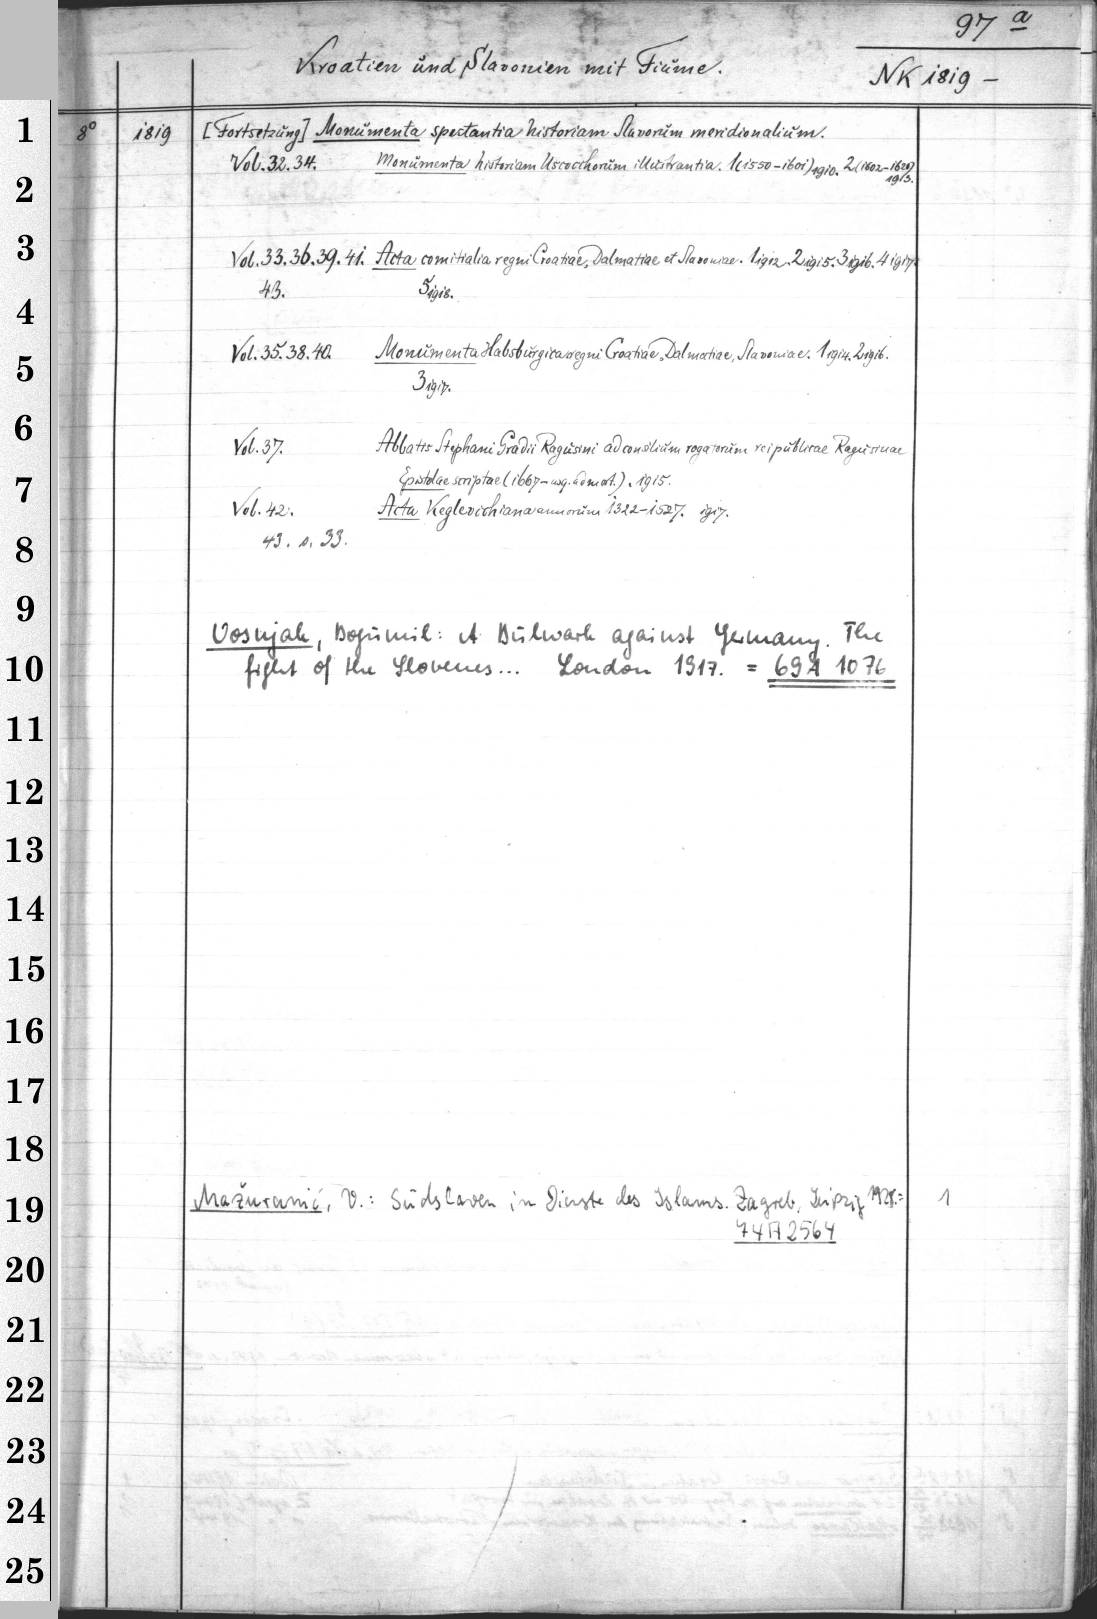 97 a
Kroatien und Slavonien mit Fiume.
NK 1819 –
1
8° 1819 [Fortsetzung] Monumenta spectantia historiam Slavorum meridionalium.
Vol. 32. 34. Monumenta historiam Uscocchorum illustrantia. 1(1550–1601) 1910. 2(1602–1620) 1913.
2
3
Vol. 33. 36. 39. 41. Acta comitialia regni Croatiae, Dalmatiae et Slavoniae. 1 1912. 2 1915. 3 1916. 4 1917.
43. 5 1918.
4
Vol. 35. 38. 40. Monumenta Habsburgica regni Croatiae, Dalmatiae, Slavoniae. 1 1914. 2 1916.
5
3 1917.
6
Vol. 37. Abbatis Stephani Gradii Ragusini ad consilium rogatorum rei publicae Ragusinae
7
Epistolae scriptae (1667–usq. ad mort.). 1915.
Vol. 42. Acta Keglevichiana annorum 1322–1527. 1917.
8
43. s. 33.
9
Vosnjak, Bogumil: A Bulwark against Germany. The
10
fight of the Slovenes... London 1917. = 69 A 1076
11
12
13
14
15
16
17
18
19
Mažuranić, V.: Südslaven in Dienste des Islams. Zagreb, Leipzig 1928.= 1
74 A 2564
20
21
22
23
24
25